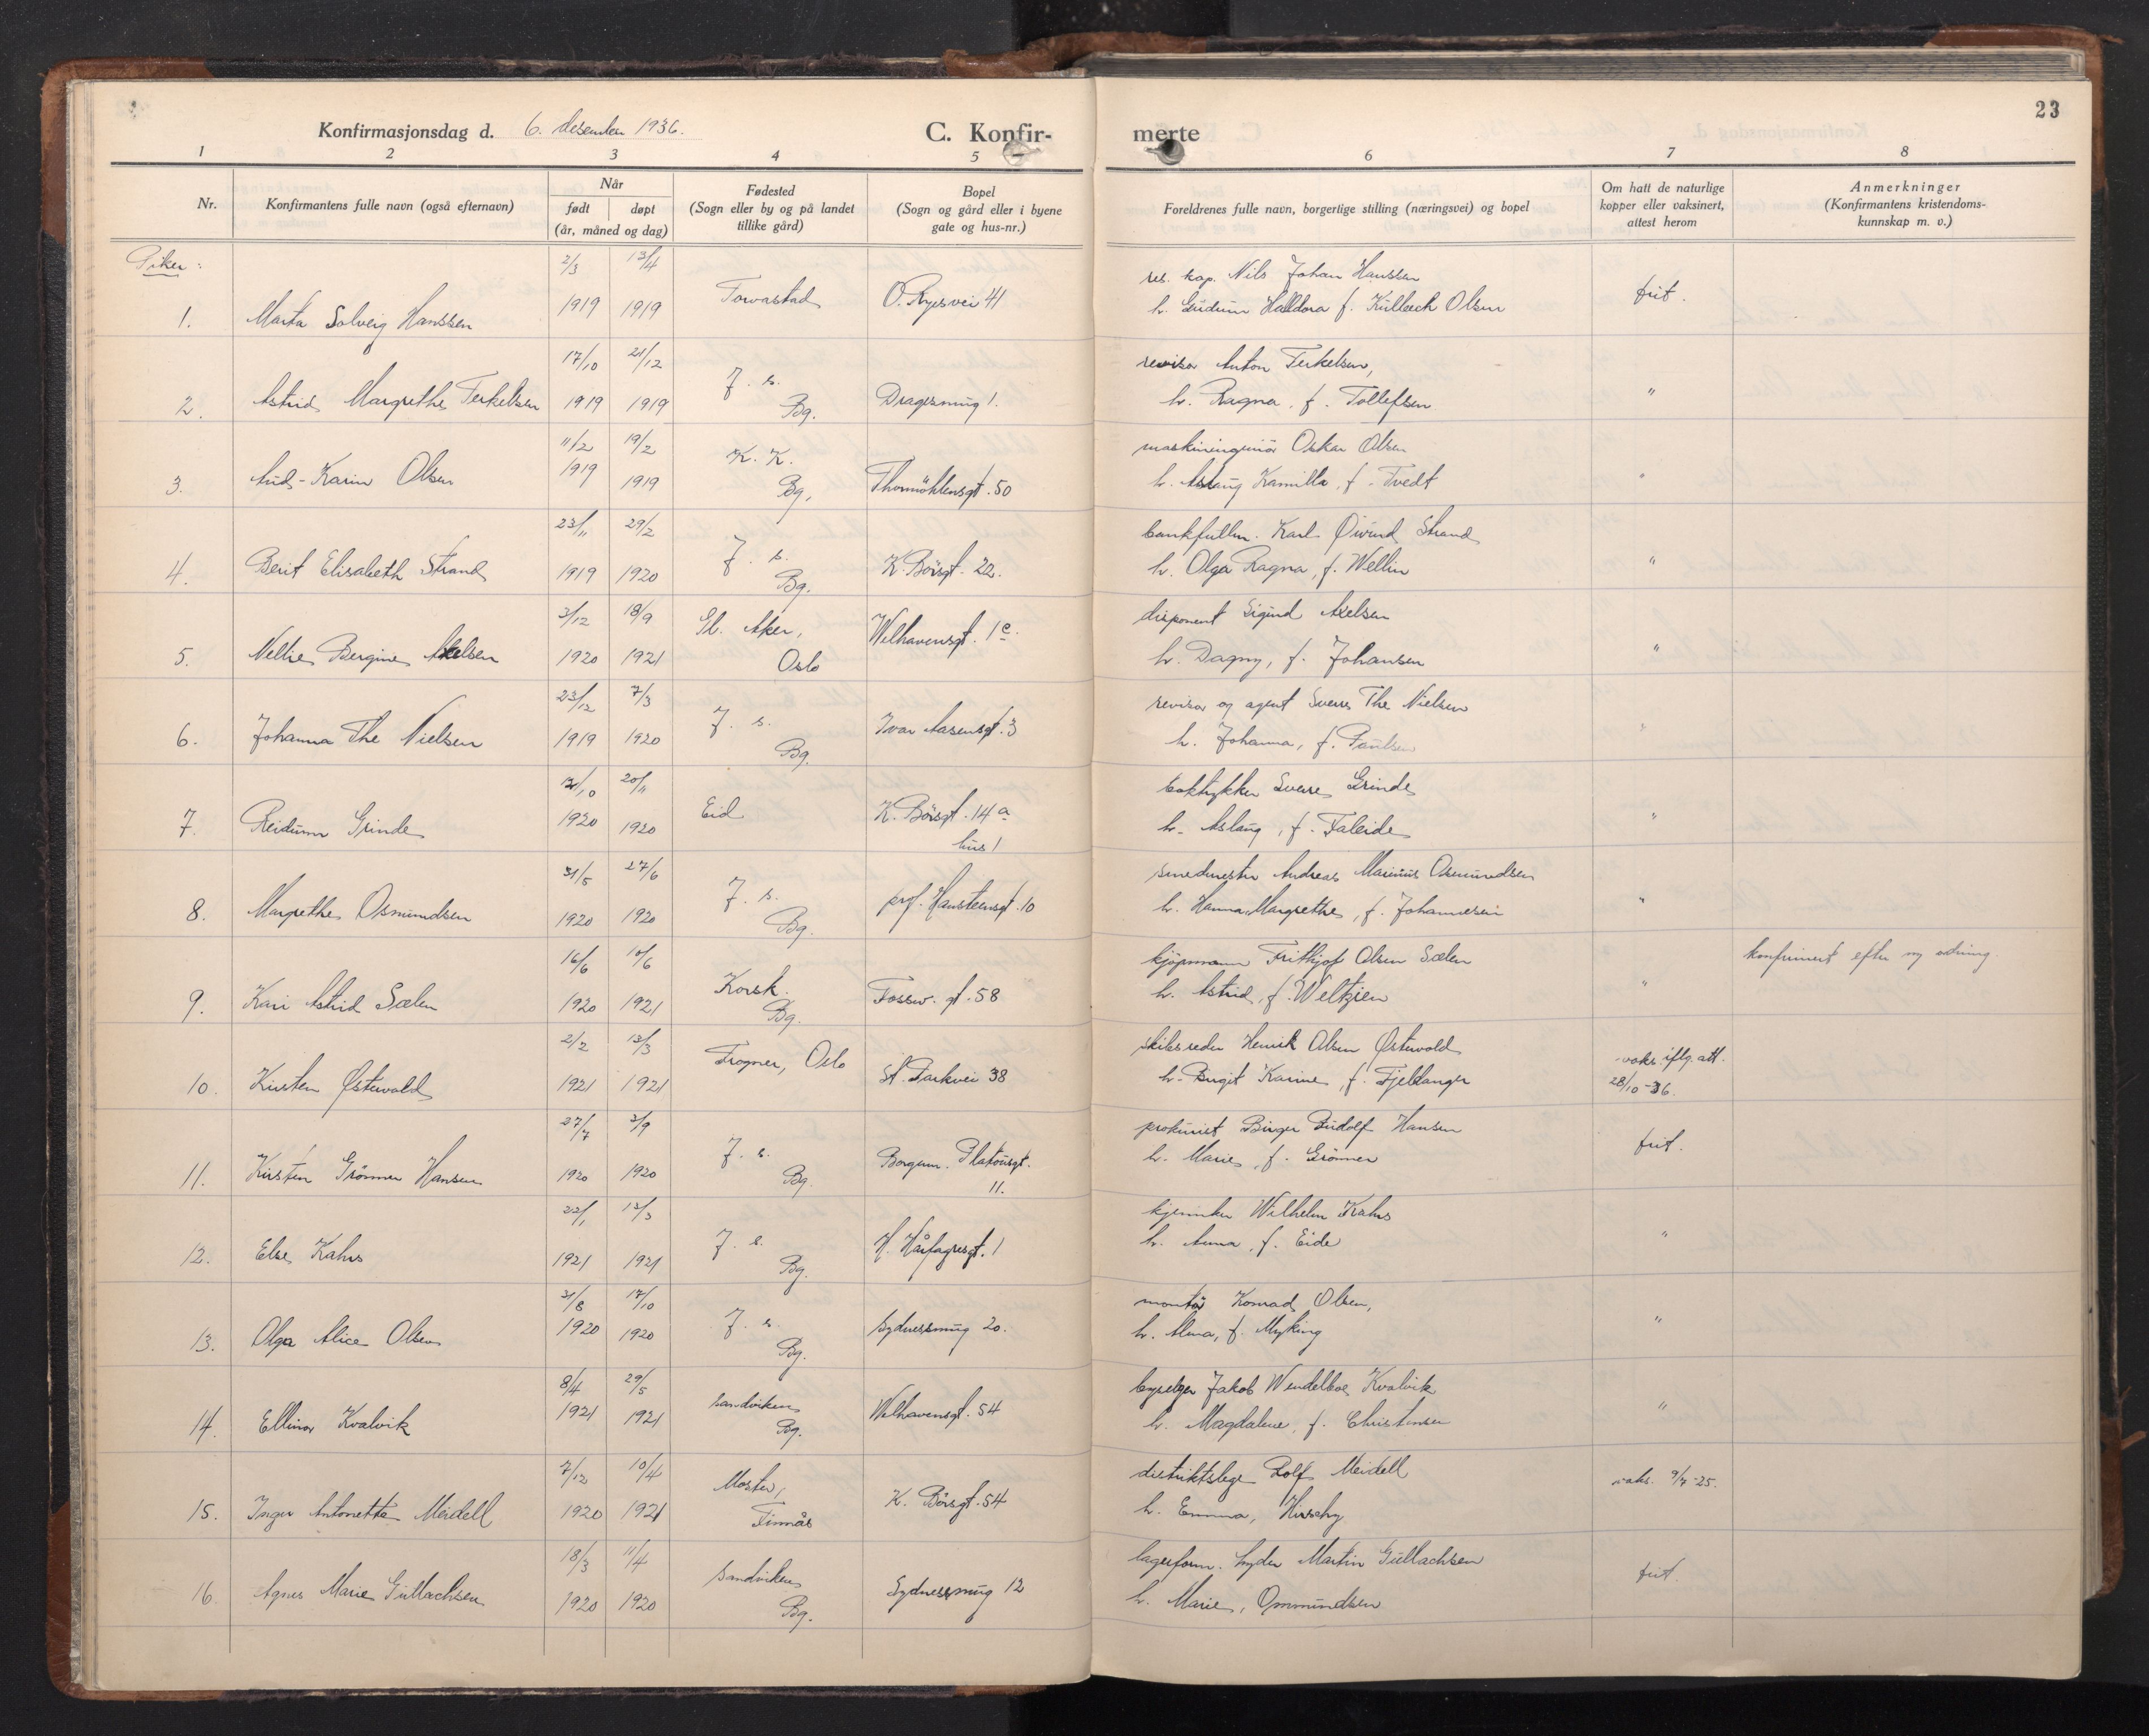 23
Konfirmasjonsdag d. 6. desember 1936.
C. Konfir-
merte
1 2 3 4 5 6 7 8
Nr.
Konfirmantens fulle navn (også efternavn)
Når
født døpt
(år, måned og dag)
Fødested
(Sogn eller by og på landet
tillike gård)
Bopel
(Sogn og gård eller i byene
gate og hus-nr.)
Foreldrenes fulle navn, borgerlige stilling (næringsvei) og bopel
Om hatt de naturlige
kopper eller vaksinert,
attest herom
Anmerkninger
(Konfirmantens kristendoms-
kunnskap m. v.)
Piker:
2/3 13/4 res. kap. Nils Johan Hanssen
1. Marta Solveig Hanssen 1919 1919 Torvastad O. Ryesvei 41 h. Gudrun Halldora f. Olsen frit.
17/10 21/12 J. k. revisor Anton Terkelsen,
2. Astrid Margrethe Terkelsen 1919 1919 Bg. Dragesmug 1. h. Ragna, f. Tollefsen "
11/2 19/2 K. K. maskiningeniør Oskar Olsen
3. Aud-Karin Olsen 1919 1919 Bg. Thormöhlensgt. 50 h. Aslaug Kamilla, f. Tvedt "
23/11 29/2 J. k. bankfullm. Karl Øivind Strand
4. Berit Elisabeth Strand 1919 1920 Bg. K. Börsgt. 22. h. Olga Ragna, f. Wellin "
3/12 18/9 Gl. Aker, disponent Sigurd Axelsen
5. Nellie Bergine Axelsen 1920 1921 Oslo Welhavensgt. 1c. h. Dagny, f. Johansen "
23/12 7/3 J. k. revisor og agent Sverre The Nielsen
6. Johanna The Nielsen 1919 1920 Bg. Ivar Aasensgt. 3 h. Johanna, f. Paulsen "
20/11 Eid boktrykker Sverre Grinde
7. Reidunn Grinde 1920 1920 K. Börsgt. 14a h. Aslaug, f. Faleide "
hus 1
31/5 27/6 J. k. smedmester Andreas Marinus Osmundsen
8. Margrethe Osmundsen 1920 1920 Bg. prof. Hansteensgt. 10 h. Hanna Margrethe, f. Johannesen "
16/6 10/6 Korsk. kjøpmann Frithjof Olsen Sælen konfirmert efter ny ordning
9. Kari Astrid Sælen 1920 1921 Bg. Fossw. gt. 58 h. Astrid, f. Weltzien "
2/2 13/3 Frogner, Oslo skibsreder Henrik Olsen Østervold vaks. iflg. att.
10. Kirsten Østervold 1921 1921 St. Parkvei 38 h. Birgit Karine, f. Fjeldanger 28/10-36.
27/7 3/9 J. k. prokurist Birger Rudolf Hansen
11. Kirsten Grönner Hansen 1920 1920 Bg. Borgerm. Platousgt. h. Marie, f. Grönner frit.
11.
22/1 13/3 J. k. Wilhelm Kahrs
12. Else Kahrs 1921 1921 Bg. H. Hårfagresgt. 1 h. Anna, f. Eide "
31/8 17/10 J. k. montør Konrad Olsen,
13. Olga Alice Olsen 1920 1920 Bg. Sydnessmug 20. h. Alma, f. Myking "
8/4 29/5 Sandviken byselger Jakob Wendelboe Kvalvik
14. Ellinor Kvalvik 1921 1921 Bg. Welhavensgt. 54 h. Magdalene, f. Christensen "
7/12 10/4 Moster, distriktslege Rolf Meidell vaks. 9/7-25.
15. Inger Antonette Meidell 1920 1921 Finnås K. Börsgt. 54 h. Emma,
18/3 11/4 Sandviken lagerform. Lyder Martin Gullachsen
16. Agnes Marie Gullachsen 1920 1920 Bg. Sydnessmug 12 h. Marie, Ommundsen frit.